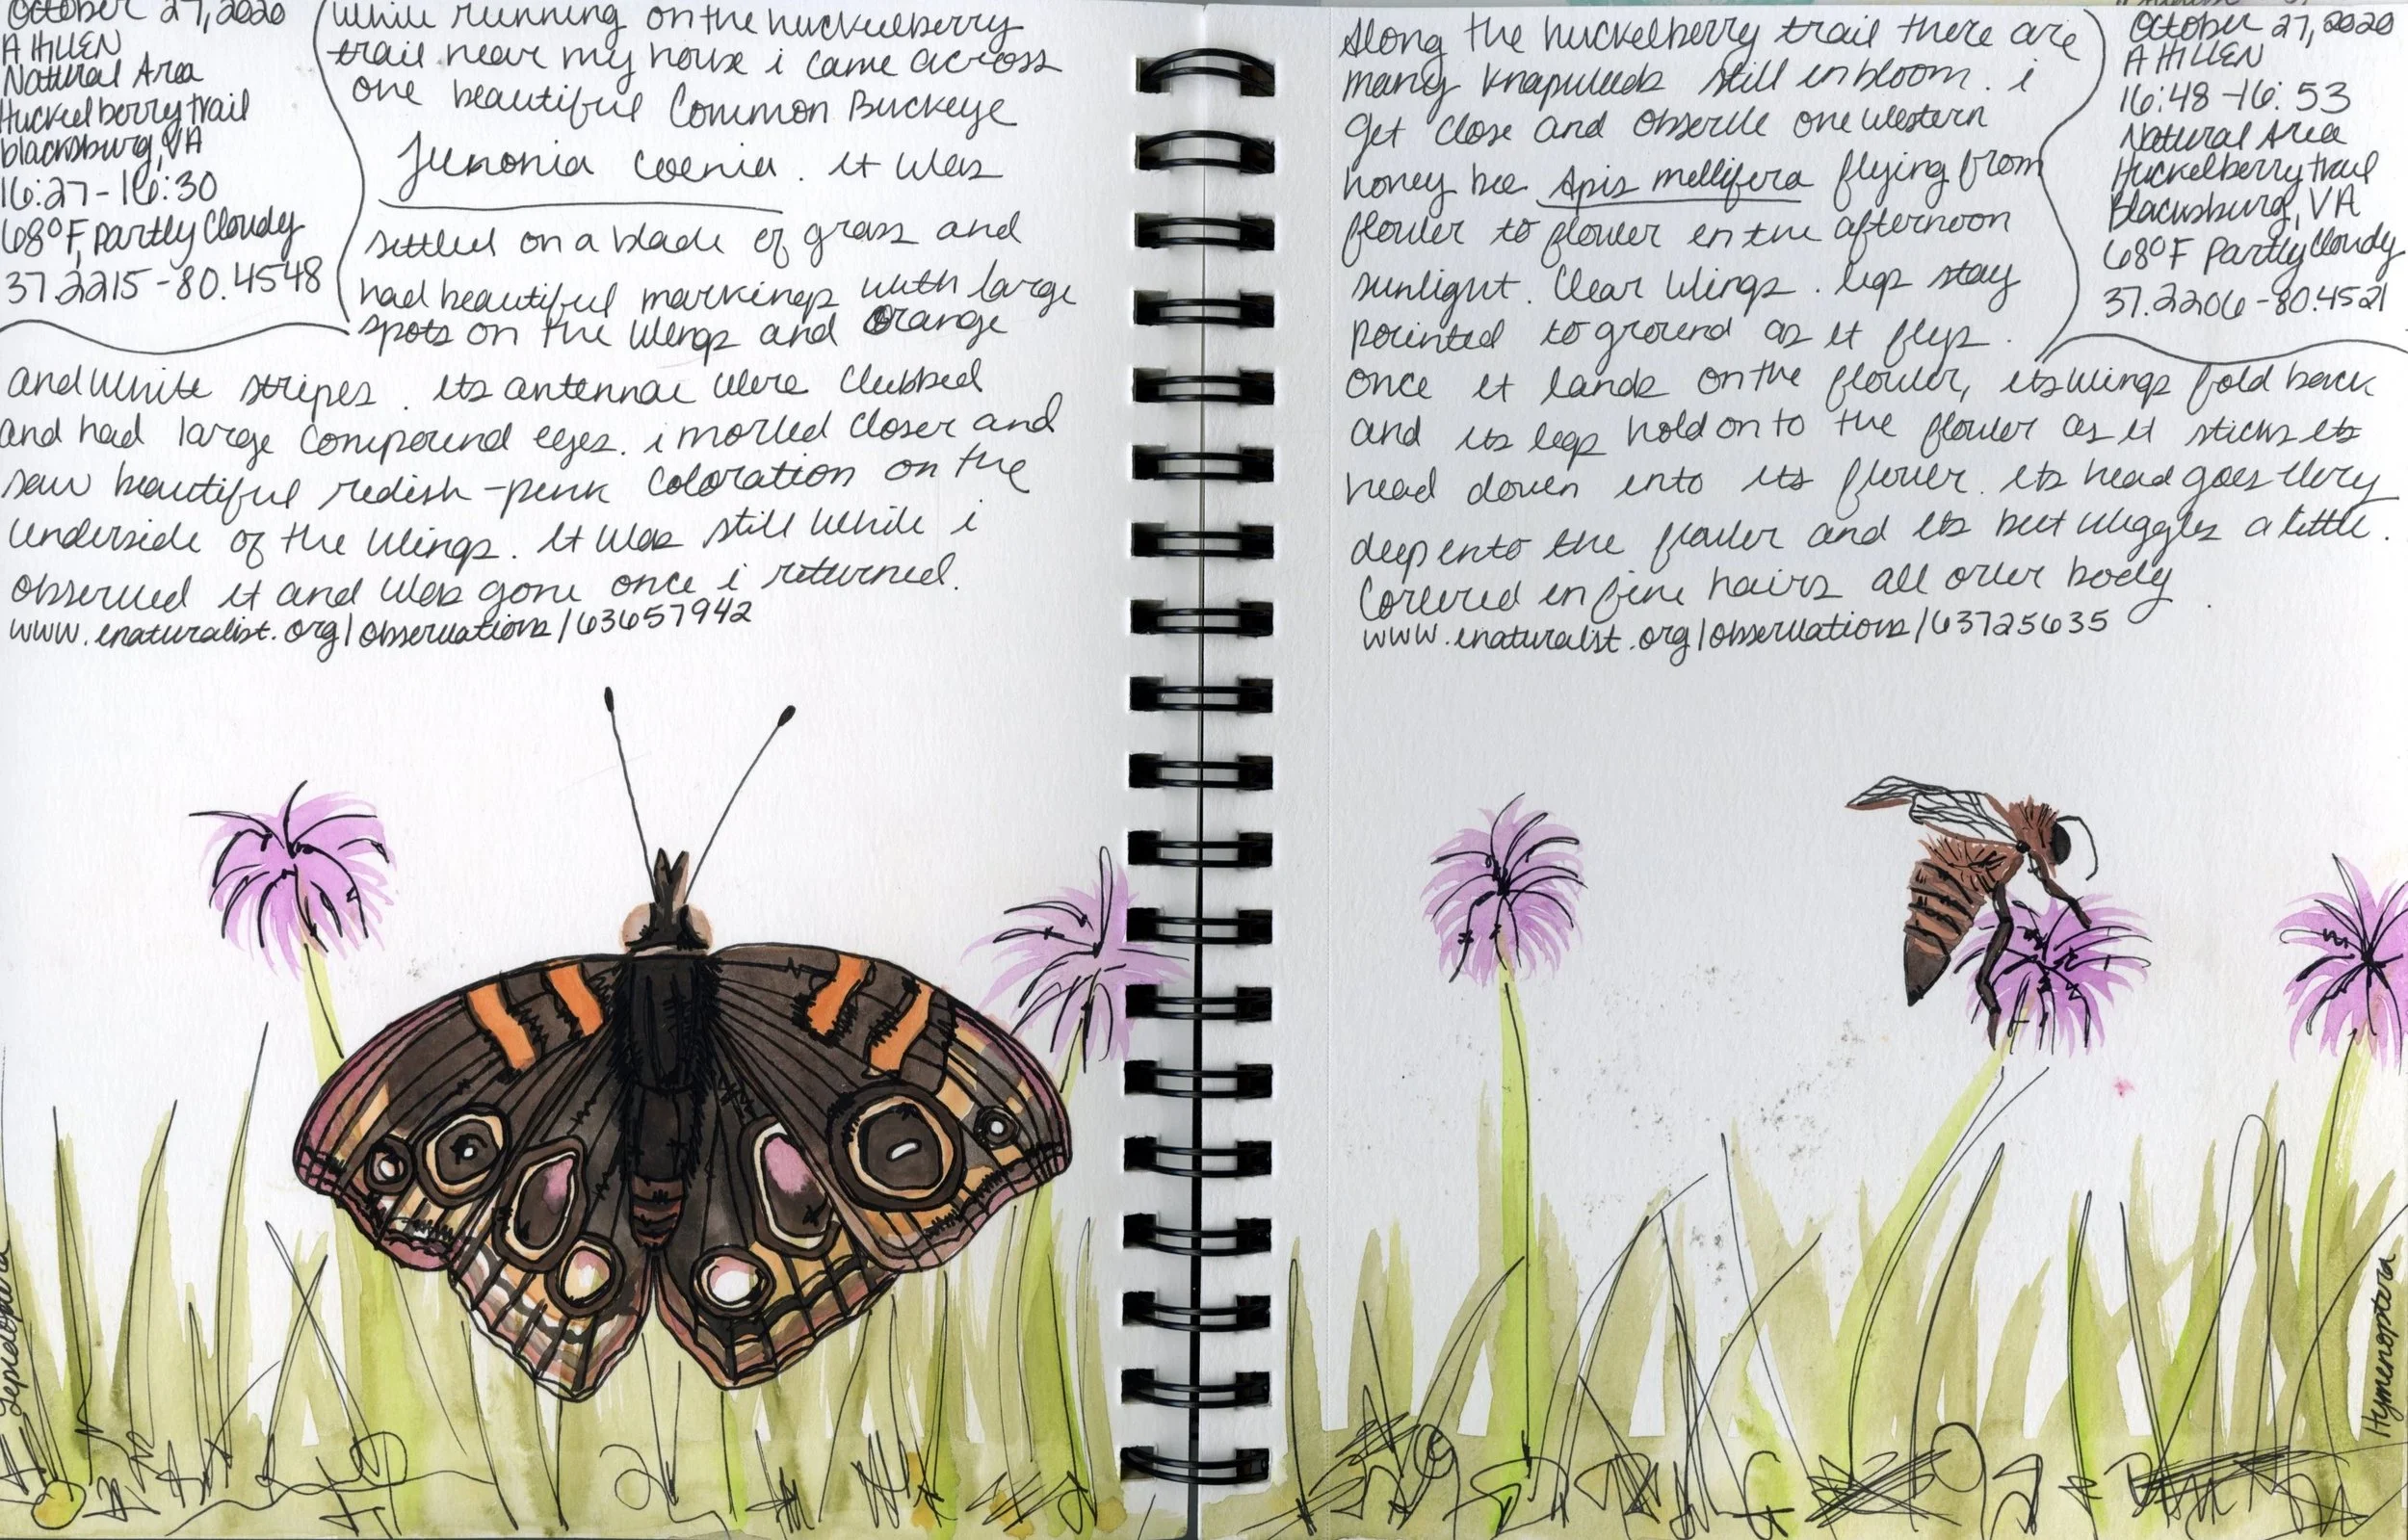 October 27, 2020
A HILLEN
Natural Area
Huckelberry trail
blacksburg, VA
16:27-16:30
68°F, partly Cloudy
37.2215 -80.4548
while running on the huckelberry
trail near my house i came across
one beautiful Common Buckeye
Junonia coenia. it was
settled on a blade of grass and
had beautiful markings with large
spots on the wings and Orange
and white stripes. its antennae were clubbed
and had large compound eyes. i moved closer and
saw beautiful redish-pink coloration on the
underside of the wings. it was still while i
observed it and was gone once i returned.
www.inaturalist.org/observations/63657942
Lepidoptera
Along the huckelberry trail there are
many knapweeds still in bloom. i
get close and observe one western
honey bee Apis mellifera flying from
flower to flower in the afternoon
sunlight. Clear wings. legs stay
pointed to ground as it flys.
once it lands on the flower, its wings fold back
and its legs hold on to the flower as it sticks its
head down into its flower. its head goes very
deep into the flower and its butt wiggles a little.
Covered in fine hairs all over body
www.inaturalist.org/observations/63725635
October 27, 2020
A HILLEN
16:48-16:53
Natural Area
Huckelberry trail
Blacksburg, VA
68°F partly Cloudy
37.2206 -80.4521
Hymenoptera